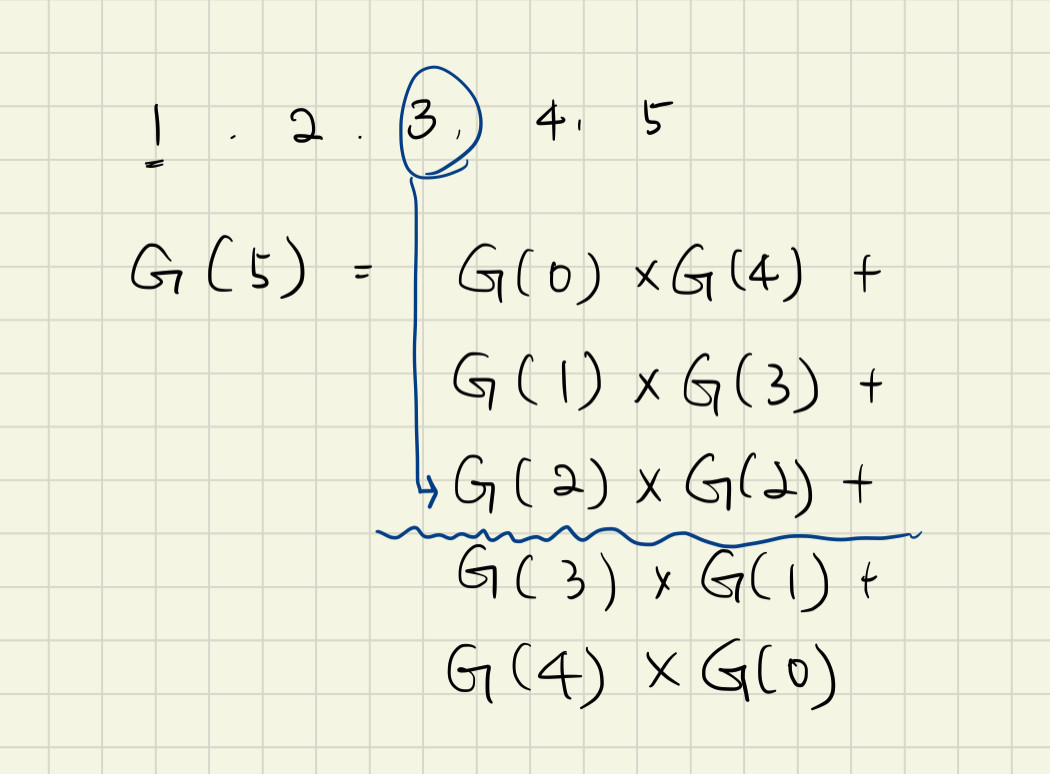 1 . 2 . 3, 4, 5
G(5) = G(0) × G(4) +
G(1) × G(3) +
G(2) × G(2) +
G(3) × G(1) +
G(4) × G(0)